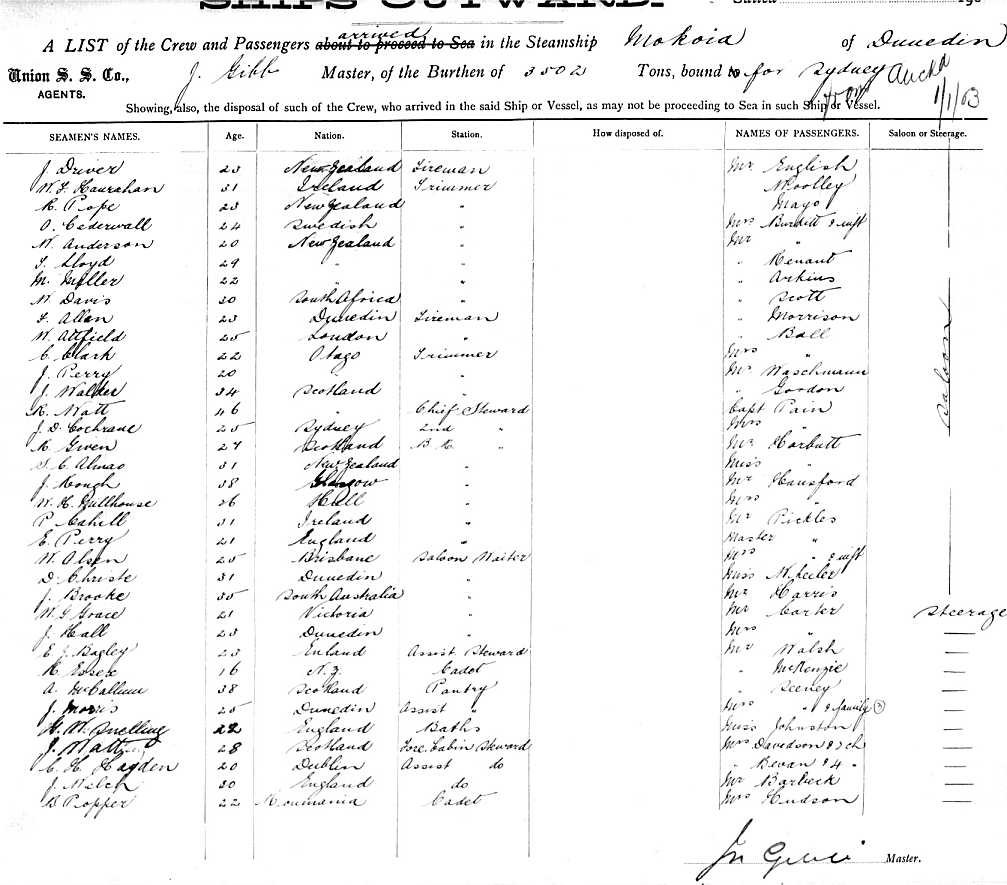 SHIPS OUTWARD.
A LIST of the Crew and Passengers arrived about to proceed to Sea in the Steamship Mokoia of Dunedin
Union S. S. Co., J. Gibb Master, of the Burthen of 3502 Tons, bound to for Sydney from Auckd
AGENTS. 1/1/03
Showing, also, the disposal of such of the Crew, who arrived in the said Ship or Vessel, as may not be proceeding to Sea in such Ship or Vessel.
SEAMEN'S NAMES. Age. Nation. Station. How disposed of. NAMES OF PASSENGERS. Saloon or Steerage.
J. Driver 23 New Zealand Fireman Mr English
W. F. Hanrahan 31 Ireland Trimmer Woolley
R. Pope 23 New Zealand " Mayo
O. Cederwall 24 Swedish " Mrs Burditt & inft
W. Anderson 20 New Zealand " Mr "
Lloyd 29 " " " Tenant
M. Miller 22 " " " Arkins
W. Davis 30 South Africa " " Scott
F. Allan 23 Dunedin Fireman " Morrison
W. Attfield 25 London " " Ball
C. Clark 22 Otago Trimmer Mrs "
J. Perry 20 " " Mr Waschmann
J. Walder 34 Scotland " " Gordon
R. Watt 46 " Chief Steward Capt Pain
J. D. Cochrane 25 Sydney 2nd " Mrs "
R. Given 27 Scotland B. R. " Mr Harbutt
S. C. Almao 31 New Zealand " Miss "
J. Hough 38 Glasgow " Mr Hansford
W. H. 26 Hull " Mrs "
P. Cahill 31 Ireland " Mr Pickles
E. Perry 21 England " Master "
W. Olsen 25 Brisbane Saloon Waiter Mrs " & inft
D. Christe 31 Dunedin " Miss Wheeler
J. Brooke 35 South Australia " Mr Harris
W. G. Grace 21 Victoria " Mr Carter Steerage
J. Hall 23 Dunedin " Mrs "
E. J. Bagley 23 Enland Assist Steward Mr Walsh
R. Essex 16 N. Z Cadet " McKenzie
A. McCallum 38 Scotland Pantry " Seeney
J. Morris 25 Dunedin Assist " Mrs " & family (3)
H. W. Snelling 22 England Baths Miss Johnston
J. Watt 28 Scotland Fore Cabin Steward Mrs Davedson & 2 ch
C. H. Hayden 20 Dublin Assist do " Bevan & 4 "
J. Welch 30 England do Mr Barbeck
B. Popper 22 Roumania Cadet Mrs Hudson
Saloon
Master.